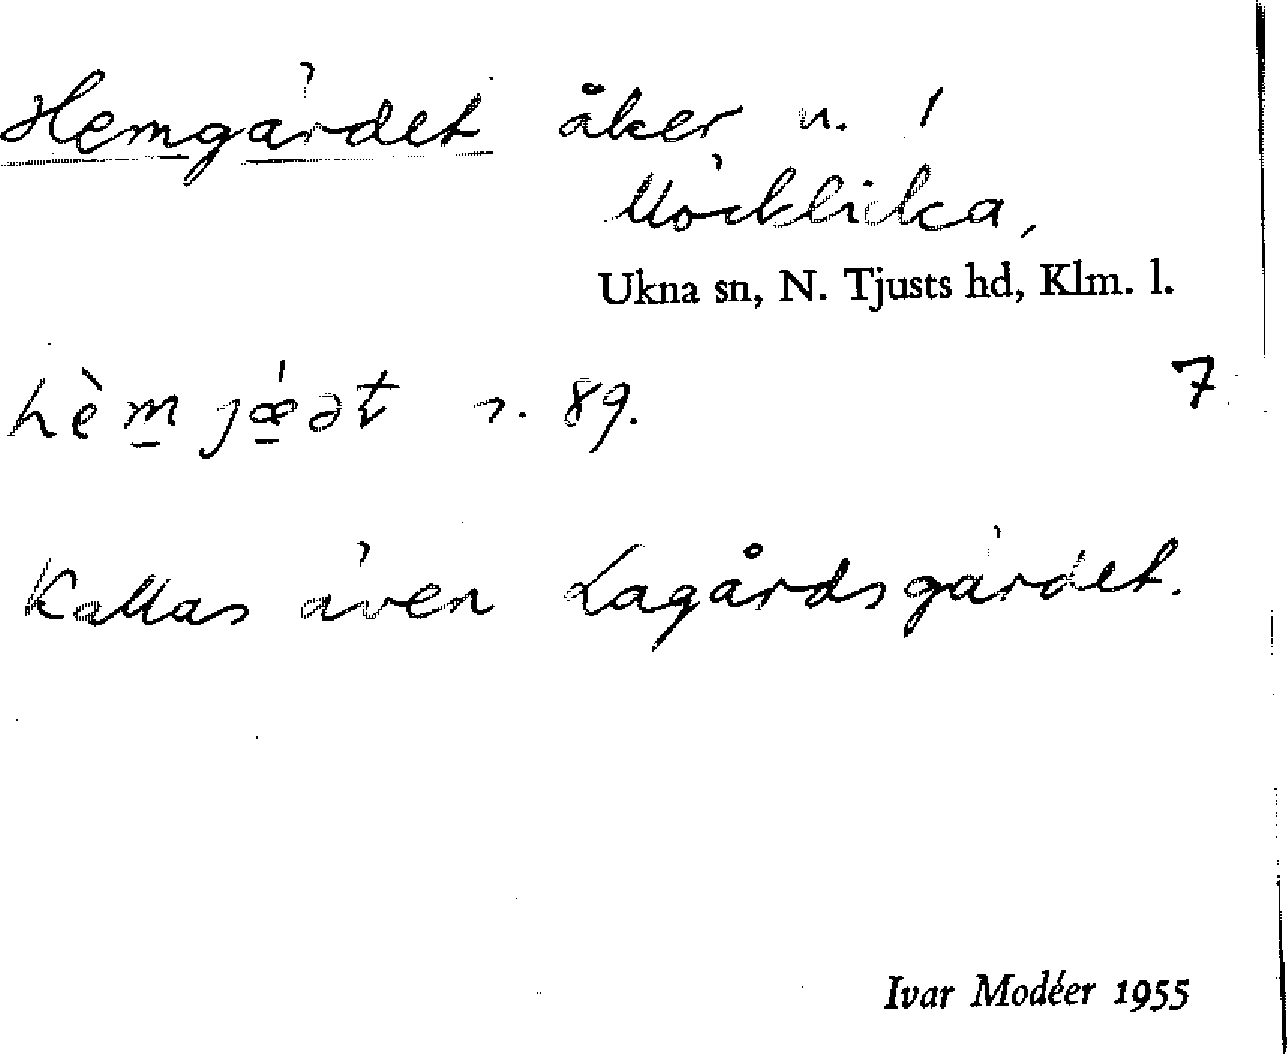 Hemgärdet åker n. 1
Möcklika,
Ukna sn, N. Tjusts hd, Klm. l.
hèmjǽət s. 89. 7
Kallas även Lagårdsgärdet.
Ivar Modéer 1955